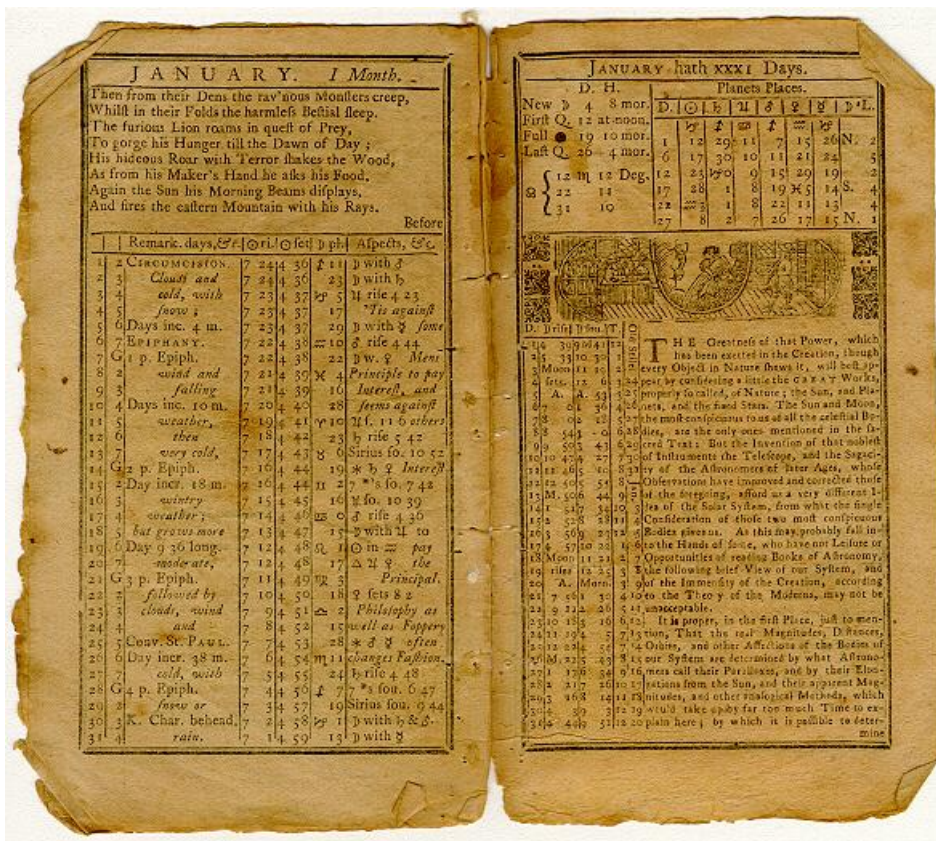 JANUARY. I Month.
Then from their Dens the rav'nous Monſters creep,
Whilſt in their Folds the harmleſs Beſtial ſleep.
The furious Lion roams in queſt of Prey,
To gorge his Hunger till the Dawn of Day ;
His hideous Roar with Terror ſhakes the Wood,
As from his Maker's Hand he aſks his Food.
Again the Sun his Morning Beams diſplays,
And fires the eaſtern Mountain with his Rays.
Before
Remark. days, &c. ☉ri. ☉ſet ☽ pl. Aſpects, &c.
1 2 CIRCUMCISION. 7 24 4 36 ♐ 11 ☽ with ♂
2 3 Clouds and 7 24 4 36 23 ☽ with ♄
3 4 cold, with 7 23 4 37 ♑ 5 ♃ riſe 4 23
4 5 ſnow ; 7 23 4 37 17 'Tis againſt
5 6 Days inc. 4 m. 7 23 4 37 29 ☽ with ☿ ſome
6 7 EPIPHANY. 7 22 4 38 ♒ 10 ♂ riſe 4 44
7 G 1 p. Epiph. 7 22 4 38 22 ☽ w. ♀ Mens
8 2 wind and 7 21 4 39 ♓ 4 Principle to pay
9 3 falling 7 21 4 39 16 Intereſt, and
10 4 Days inc. 10 m. 7 20 4 40 28 ſeems againſt
11 5 weather, 7 19 4 41 ♈ 10 11 6 others
12 6 then 7 18 4 42 23 ♄ riſe 5 42
13 7 very cold, 7 17 4 43 ♉ 6 Sirius ſo. 10 52
14 G 2 p. Epiph. 7 16 4 44 19 ✶ ♄ ♀ Intereſt
15 2 Day incr. 18 m. 7 16 4 44 ♊ 2 7 *'s ſo. 7 42
16 3 wintry 7 15 4 45 16 ſo. 10 39
17 4 weather ; 7 14 4 46 ♋ 0 ♂ riſe 4 36
18 5 but grows more 7 13 4 47 15 ☽ with ♃ to
19 6 Day 9 36 long. 7 12 4 48 ♌ 1 ☉ in ♒ pay
20 7 moderate, 7 12 4 48 17 △ ♃ ♀ the
21 G 3 p. Epiph. 7 11 4 49 ♍ 3 Principal.
22 2 followed by 7 10 4 50 18 ♀ ſets 8 2
23 3 clouds, wind 7 9 4 51 ♎ 2 Philoſophy as
24 4 and 7 8 4 52 15 well as Foppery
25 5 Conv. St. PAUL. 7 7 4 53 28 ✶ ♂ ☿ often
26 6 Day incr. 38 m. 7 6 4 54 ♏ 11 changes Faſhion.
27 7 cold, with 7 5 4 55 24 ♄ riſe 4 48
28 G 4 p. Epiph. 7 4 4 56 ♐ 7 7 *'s ſou. 6 47
29 2 ſnow or 7 3 4 57 19 Sirius ſou. 9 44
30 3 K. Char. behead. 7 2 4 58 ♑ 1 ☽ with ♄ & ♂.
31 4 rain. 7 1 4 59 13 ☽ with ☿
JANUARY hath XXXI Days.
D. H.
New ☽ 4 8 mor.
Firſt Q. 12 at noon.
Full ● 19 10 mor.
Laſt Q. 26 4 mor.
☊ { 12 ♏ 12 Deg.
22 11
31 10
Planets Places.
D. ☉ ♄ ♃ ♂ ♀ ☿ ☽'s L.
♑ ♐ ♒ ♐ ♒ ♑
1 12 29 11 7 15 26 N. 2
6 17 30 10 11 21 24 5
12 23 ♑ 0 9 15 29 19 2
17 28 1 8 19 ♓ 5 14 S. 4
22 ♒ 3 1 8 22 11 13 4
27 8 2 7 26 17 15 N. 1
D. ☽ riſe ☽ ſou. T.
THE Greatneſs of that Power, which
has been exerted in the Creation, though
every Object in Nature ſhews it, will beſt ap-
pear by conſidering a little the GREAT Works,
properly ſo called, of Nature ; the Sun, and Pla-
nets, and the fixed Stars. The Sun and Moon,
the moſt conſpicuous to us of all the celeſtial Bo-
dies, are the only ones mentioned in the ſa-
cred Text : But the Invention of that nobleſt
of Inſtruments the Teleſcope, and the Sagaci-
ty of the Aſtronomers of later Ages, whoſe
Obſervations have improved and corrected thoſe
of the foregoing, afford us a very different I-
dea of the Solar Syſtem, from what the ſingle
Conſideration of thoſe two moſt conſpicuous
Bodies gives us. As this may probably fall in-
to the Hands of ſome, who have not Leiſure or
Opportunities of reading Books of Aſtronomy,
the following brief View of our Syſtem, and
of the Immenſity of the Creation, according
to the Theory of the Moderns, may not be
unacceptable.
It is proper, in the firſt Place, juſt to men-
tion, That the real Magnitudes, Diſtances,
Orbits, and other Affections of the Bodies of
our Syſtem are determined by what Aſtrono-
mers call their Parallaxes, and by their Elon-
gations from the Sun, and their apparent Mag-
nitudes, and other analogical Methods, which
would take up by far too much Time to ex-
plain here ; by which it is poſſible to deter-
mine